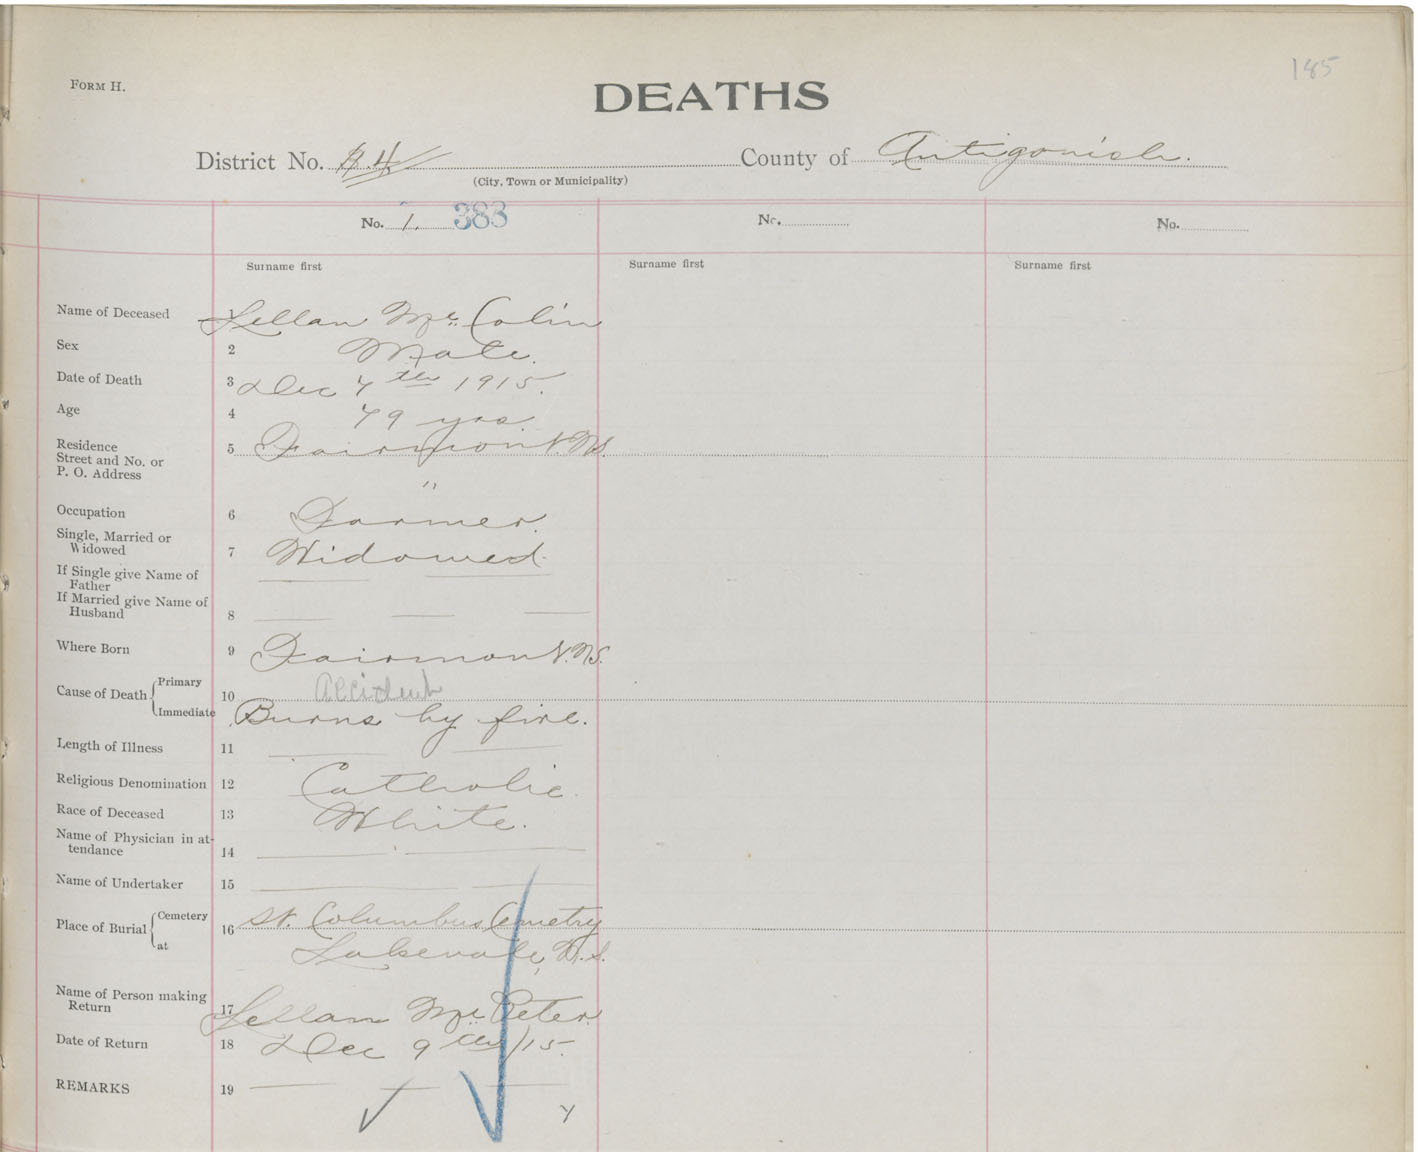 185
FORM H.
DEATHS
District No. # 4 County of Antigonish.
(City, Town or Municipality)
No. 1. 383 No. No.
Surname first Surname first Surname first
Name of Deceased 1 Lellan Mc. Colin
Sex 2 Male.
Date of Death 3 Dec 7th 1915.
Age 4 79 yrs.
Residence 5 Fairmont N.S.
Street and No. or
P. O. Address "
Occupation 6 Farmer.
Single, Married or
Widowed 7 Widowed.
If Single give Name of
Father
If Married give Name of
Husband 8
Where Born 9 Fairmont N.S.
Cause of Death Primary 10 Accident
Immediate Burns by fire.
Length of Illness 11
Religious Denomination 12 Catholic.
Race of Deceased 13 White.
Name of Physician in at-
tendance 14
Name of Undertaker 15
Place of Burial Cemetery 16 St. Columbus Cemetry
at Lakevale, N.S.
Name of Person making
Return 17 Lellan Mc. Peter.
Date of Return 18 Dec 9th /15.
REMARKS 19